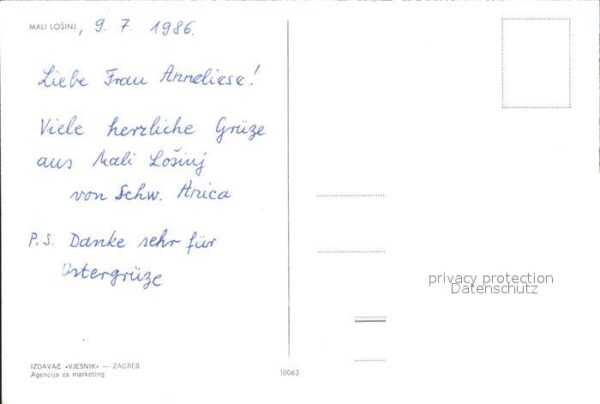 MALI LOŠINJ, 9. 7. 1986.
Liebe Frau Anneliese!
Viele herzliche Grüze
aus Mali Lošinj
von Schw. Anica
P.S. Danke sehr für
Ostergrüze
privacy protection
Datenschutz
IZDAVAČ »VJESNIK« — ZAGREB
Agencija za marketing
10063